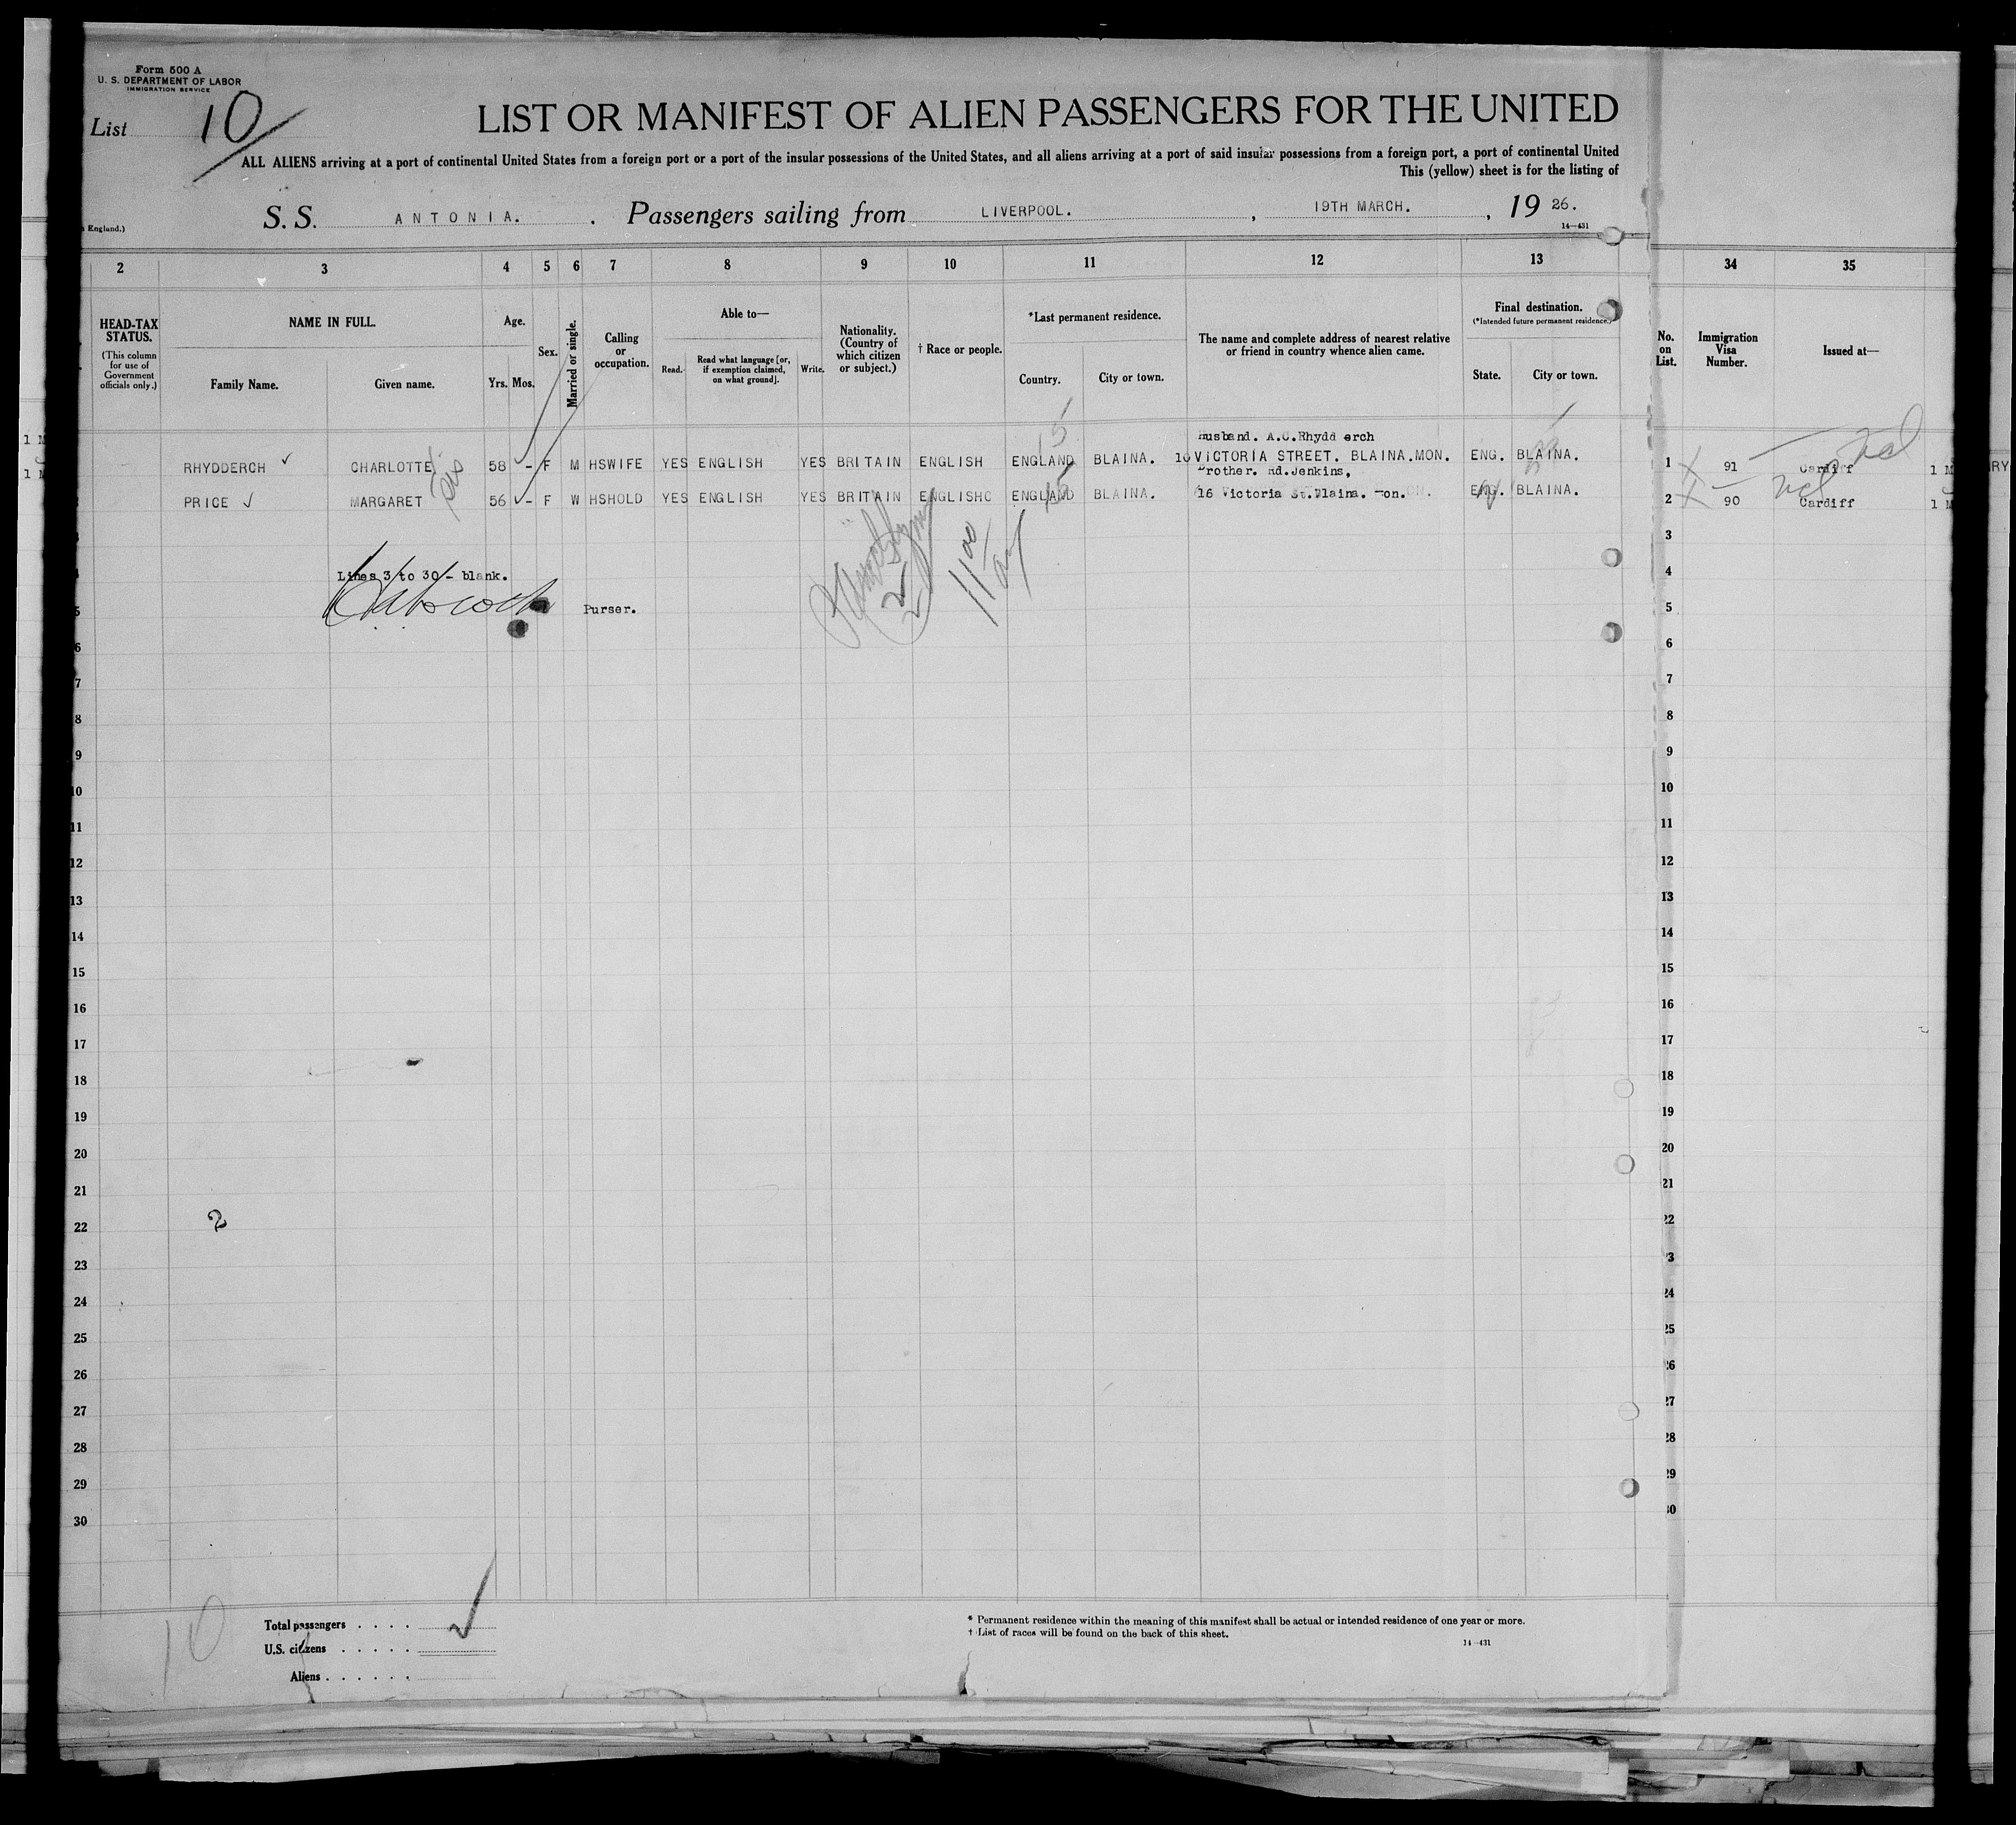 Form 500 A
U. S. DEPARTMENT OF LABOR
IMMIGRATION SERVICE
List 10
LIST OR MANIFEST OF ALIEN PASSENGERS FOR THE UNITED
ALL ALIENS arriving at a port of continental United States from a foreign port or a port of the insular possessions of the United States, and all aliens arriving at a port of said insular possessions from a foreign port, a port of continental United
This (yellow) sheet is for the listing of
England.)
S. S. ANTONIA. . Passengers sailing from LIVERPOOL. , 19TH MARCH. , 19 26.
14—431
2 3 4 5 6 7 8 9 10 11 12 13 34 35
HEAD-TAX STATUS. (This column for use of Government officials only.)
NAME IN FULL.
Family Name. Given name.
Age.
Yrs. Mos.
Sex.
Married or single.
Calling or occupation.
Able to—
Read. Read what language [or, if exemption claimed, on what ground]. Write.
Nationality. (Country of which citizen or subject.)
† Race or people.
*Last permanent residence.
Country. City or town.
The name and complete address of nearest relative or friend in country whence alien came.
Final destination.
(*Intended future permanent residence.)
State. City or town.
No. on List.
Immigration Visa Number.
Issued at—
Husband. A.C.Rhydd erch
RHYDDERCH CHARLOTTE 58 - F M HSWIFE YES ENGLISH YES BRITAIN ENGLISH ENGLAND BLAINA. VICTORIA STREET. BLAINA.MON. ENG. BLAINA. 1 91 Cardiff
Brother. Jenkins,
PRICE MARGARET 56 - F W HSHOLD YES ENGLISH YES BRITAIN ENGLISH ENGLAND BLAINA. 16 Victoria St. ENG. BLAINA. 2 90 Cardiff
11 00
Lines 3 to 30 - blank.
Purser.
2
3
4
5
6
7
8
9
10
11
12
13
14
15
16
17
18
19
20
21
22
2
23
24
25
26
27
28
29
30
10
Total passengers . . . .
U.S. citizens . . . . .
Aliens . . . . . .
* Permanent residence within the meaning of this manifest shall be actual or intended residence of one year or more.
† List of races will be found on the back of this sheet.
14—431